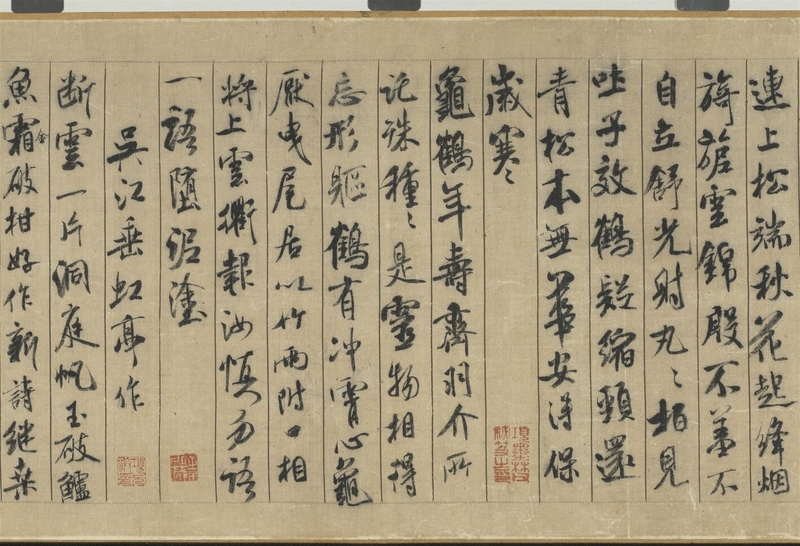 連上松端秋花起絳烟
旖旎雲錦殷不羞不
自立舒光射丸〻柏見
吐子效鶴疑縮頸還
青松本無華安得保
歲寒〻
龜鶴年壽齊羽介所
託殊種〻是靈物相得
忘形軀鶴有冲霄心龜
厭曳尾居以竹兩附口相
將上雲衢報汝慎勿語
一語墮泥塗
吳江垂虹亭作
断雲一片洞庭帆玉破鱸
魚霜金破柑好作新詩繼桑
項墨林父秘笈之印